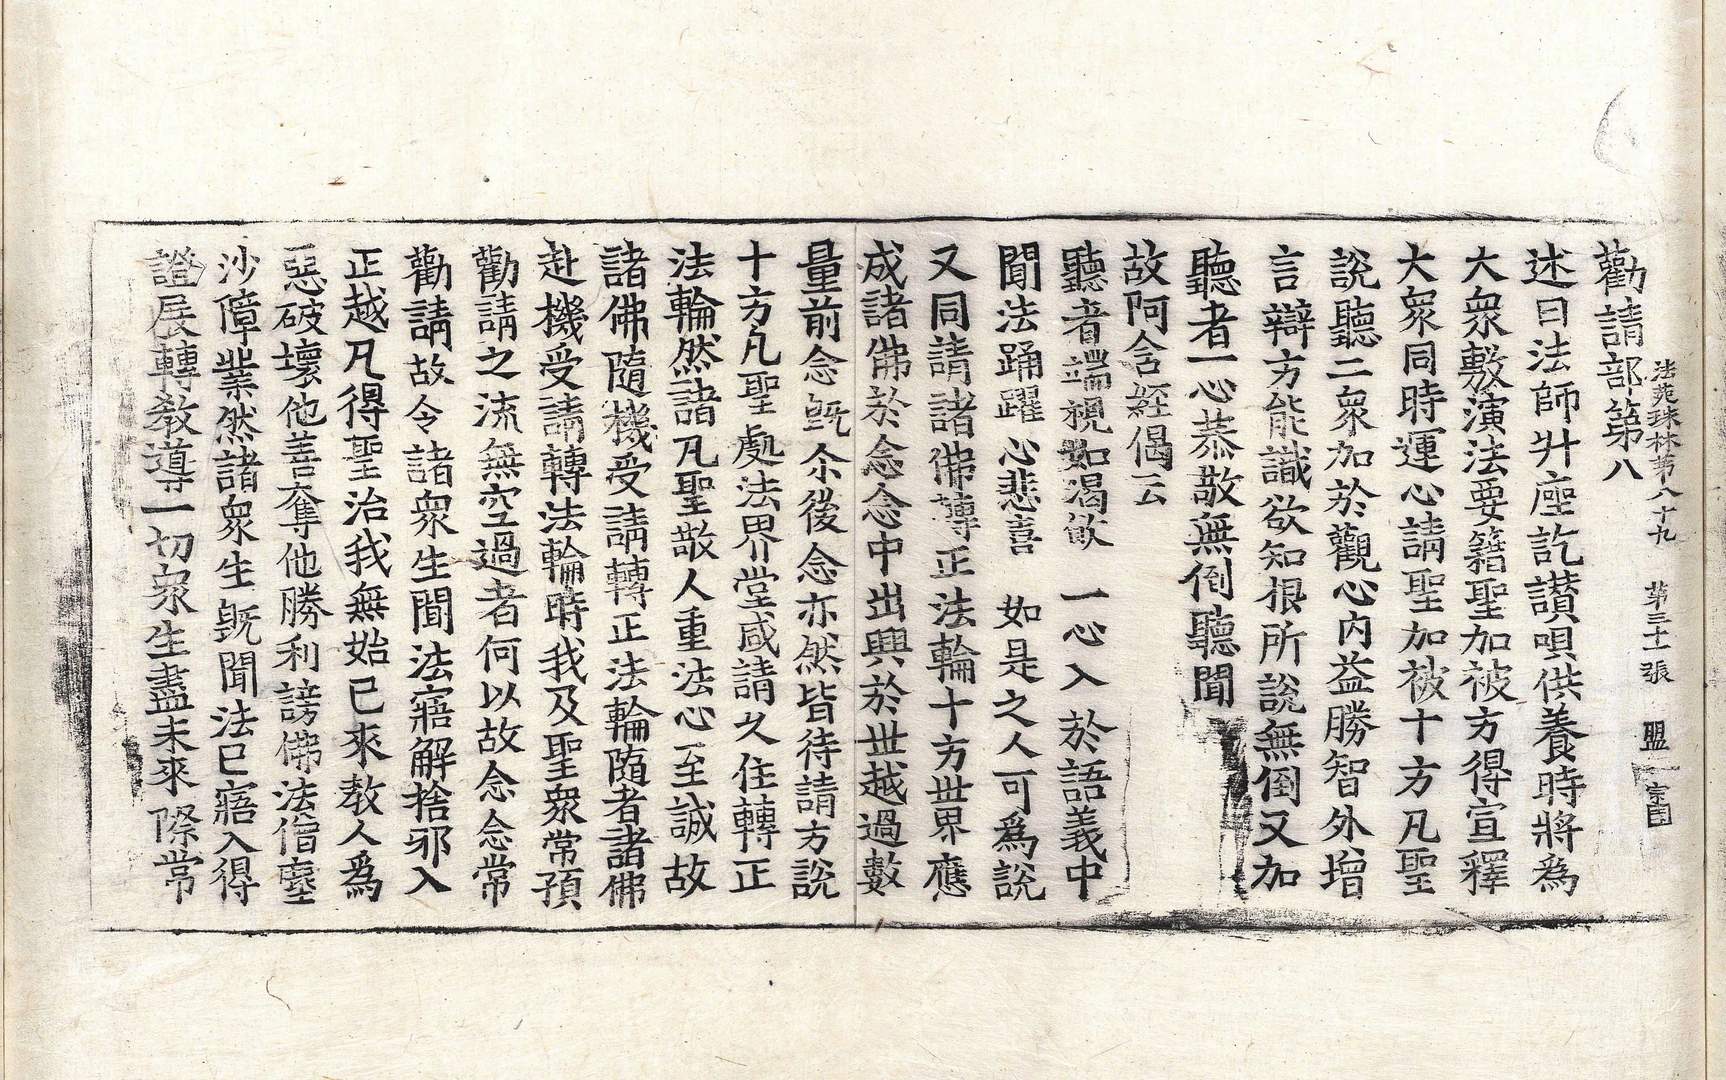 勸請部第八
法苑珠林第八十九 第三十一張 盟
述曰法師升座訖讃唄供養時將爲
大衆敷演法要籍聖加被方得宣釋
大衆同時運心請聖加被十方凡聖
說聽二衆加於觀心內益勝智外增
言辯方能識欲知根所說無倒又加
聽者一心恭敬無倒聽聞
故阿含經偈云
聽者端視如渴飮 一心入於語義中
聞法踊躍心悲喜 如是之人可爲說
又同請諸佛轉正法輪十方世界應
成諸佛於念念中出興於世越過數
量前念旣尒後念亦然皆待請方說
十方凡聖處法界堂咸請久住轉正
法輪然諸凡聖敬人重法心至誠故
諸佛隨機受請轉正法輪隨者諸佛
赴機受請轉法輪時我及聖衆常預
勸請之流無空過者何以故念念常
勸請故令諸衆生聞法寤解捨邪入
正越凡得聖治我無始已來教人爲
惡破壞他善奪他勝利謗佛法僧塵
沙障業然諸衆生旣聞法已寤入得
證展轉教導一切衆生盡未來際常